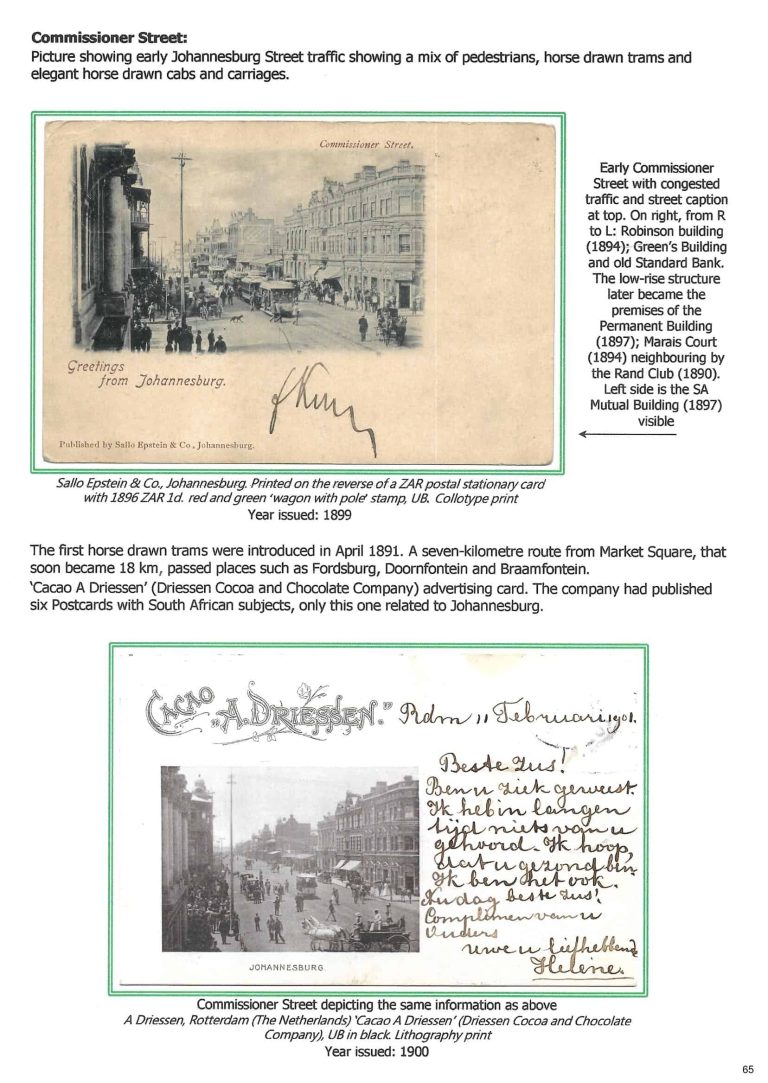 Commissioner Street:
Picture showing early Johannesburg Street traffic showing a mix of pedestrians, horse drawn trams and
elegant horse drawn cabs and carriages.
Commissioner Street.
Greetings
from Johannesburg.
Published by Sallo Epstein & Co., Johannesburg.
Early Commissioner
Street with congested
traffic and street caption
at top. On right, from R
to L: Robinson building
(1894); Green's Building
and old Standard Bank.
The low-rise structure
later became the
premises of the
Permanent Building
(1897); Marais Court
(1894) neighbouring by
the Rand Club (1890).
Left side is the SA
Mutual Building (1897)
visible
Sallo Epstein & Co., Johannesburg. Printed on the reverse of a ZAR postal stationary card
with 1896 ZAR 1d. red and green 'wagon with pole' stamp, UB. Collotype print
Year issued: 1899
The first horse drawn trams were introduced in April 1891. A seven-kilometre route from Market Square, that
soon became 18 km, passed places such as Fordsburg, Doornfontein and Braamfontein.
'Cacao A Driessen' (Driessen Cocoa and Chocolate Company) advertising card. The company had published
six Postcards with South African subjects, only this one related to Johannesburg.
CACAO „A. DRIESSEN." Rdm 11 Februari 1901.
Beste Zus!
Ben u ziek geweest.
Ik heb in langen
tijd niets van u
gehoord. Ik hoop,
dat u gezond bin.
Ik ben het ook.
Nu dag beste Zus!
Complimen van u
Ouders
uwe u liefhebbend
Helene.
JOHANNESBURG
Commissioner Street depicting the same information as above
A Driessen, Rotterdam (The Netherlands) 'Cacao A Driessen' (Driessen Cocoa and Chocolate
Company), UB in black. Lithography print
Year issued: 1900
65